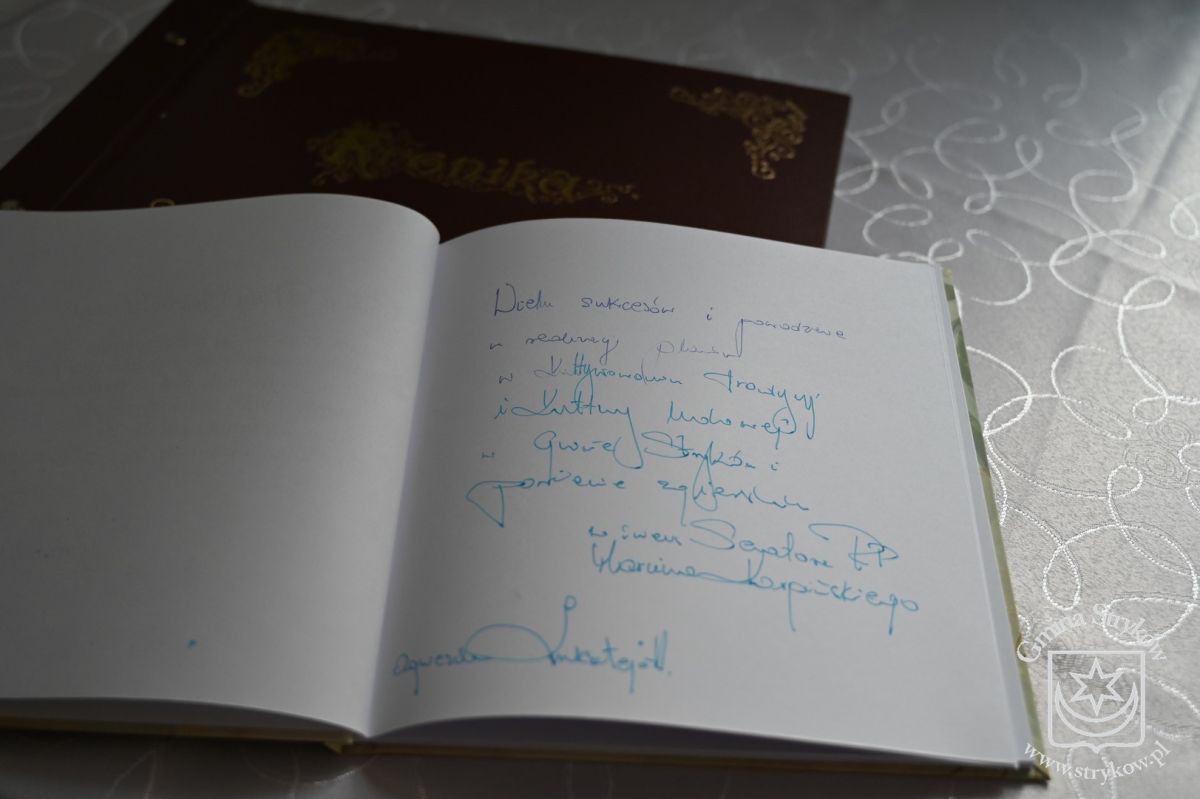 Kronika
Wielu sukcesów i powodzenia
w realizacji planów
w kultywowaniu tradycji
i kultury ludowej
w Gminie Stryków i
powiecie zgierskim
w imieniu Senatora RP
Karpińskiego
Agnieszka
Gmina Stryków
www.strykow.pl